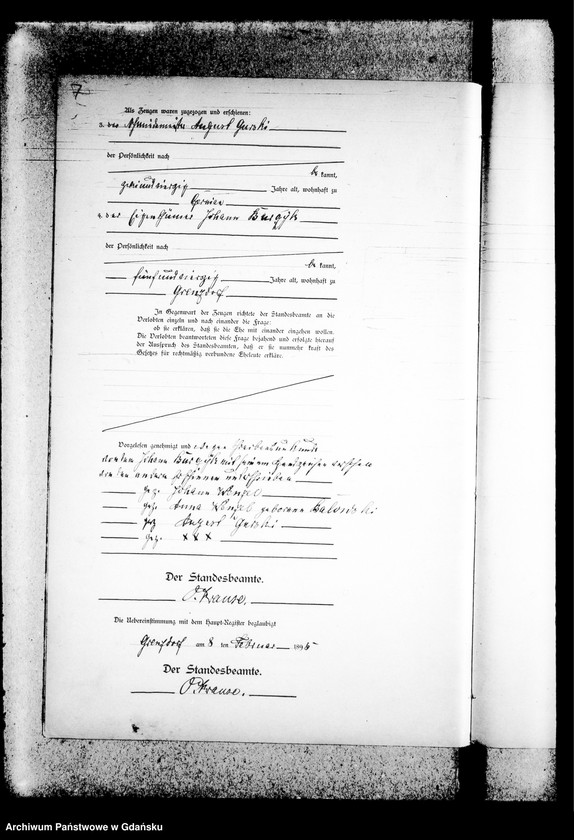 7
Als Zeugen waren zugezogen und erschienen:
3. der Schmiedemeister August Gurski
der Persönlichkeit nach
be kannt,
zweiundvierzig Jahre alt, wohnhaft zu
4. der Eigenthümer Johann Burczyk
der Persönlichkeit nach
be kannt,
fünfundvierzig Jahre alt, wohnhaft zu
Grenzdorf
In Gegenwart der Zeugen richtete der Standesbeamte an die
Verlobten einzeln und nach einander die Frage:
ob sie erklären, daß sie die Ehe mit einander eingehen wollen.
Die Verlobten beantworteten diese Frage bejahend und erfolgte hierauf
der Ausspruch des Standesbeamten, daß er sie nunmehr kraft des
Gesetzes für rechtmäßig verbundene Eheleute erkläre.
Vorgelesen, genehmigt und wegen
von dem Johann Burczyk mit seinem Handzeichen versehen
von den anderen Personen unterschrieben
gez. Johann
gez. Anna geborene
gez. August Gurski
gez. x x x
Der Standesbeamte.
O. Krause.
Die Uebereinstimmung mit dem Haupt-Register beglaubigt
Grenzdorf am 8 ten Februar 189
Der Standesbeamte.
O. Krause.
Archiwum Państwowe w Gdańsku